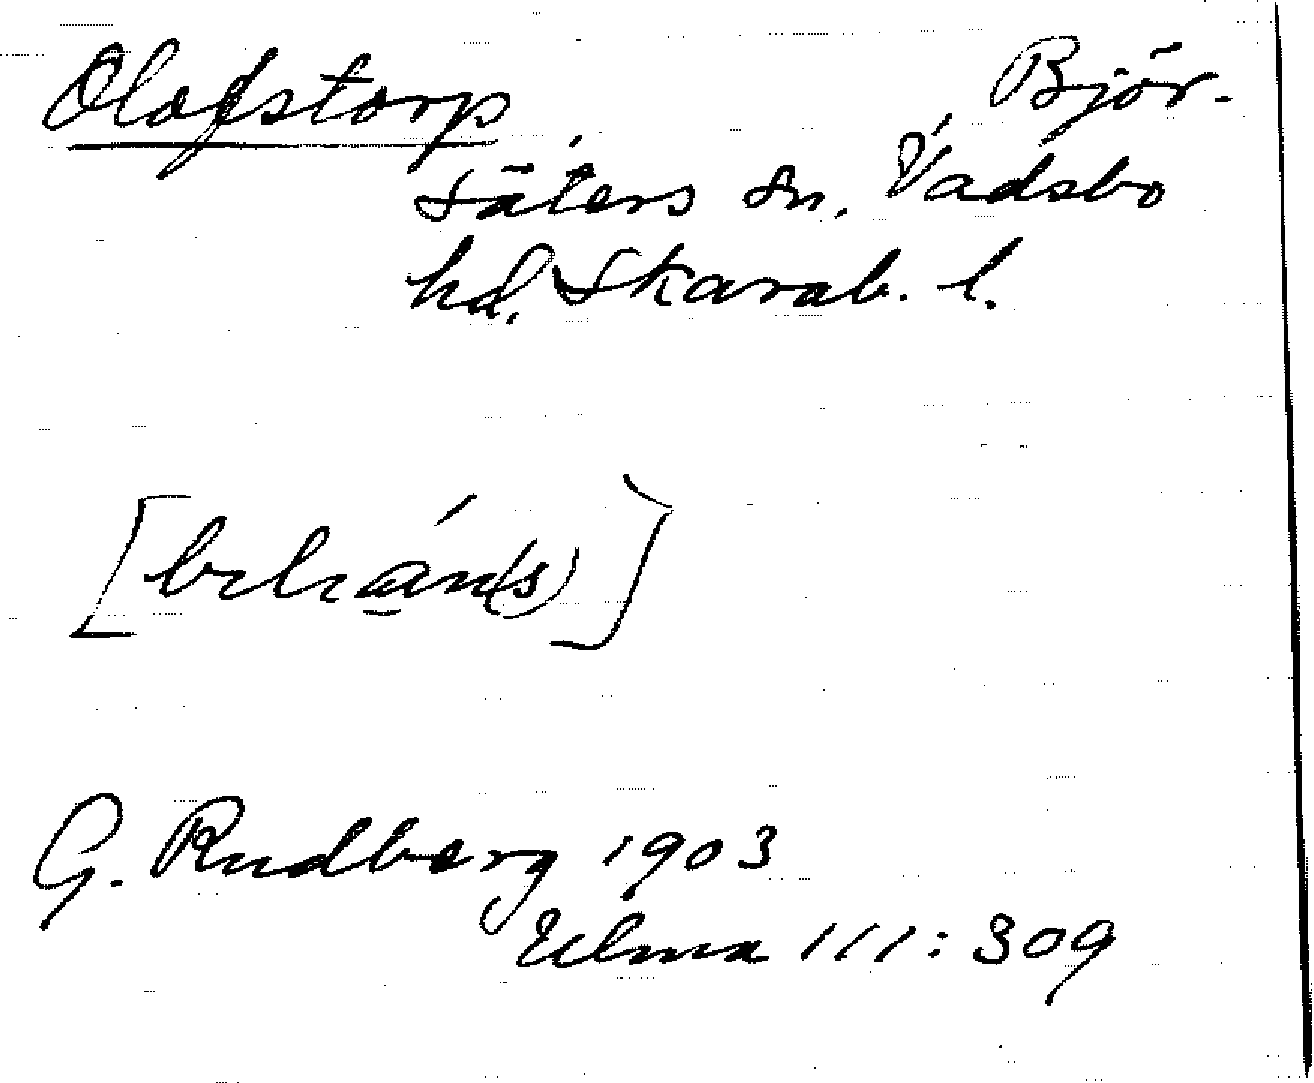 Olofstorp Björ-
säters sn, Vadsbo
hd, Skarab. l.
G. Rudberg 1903
Ulma 111:309